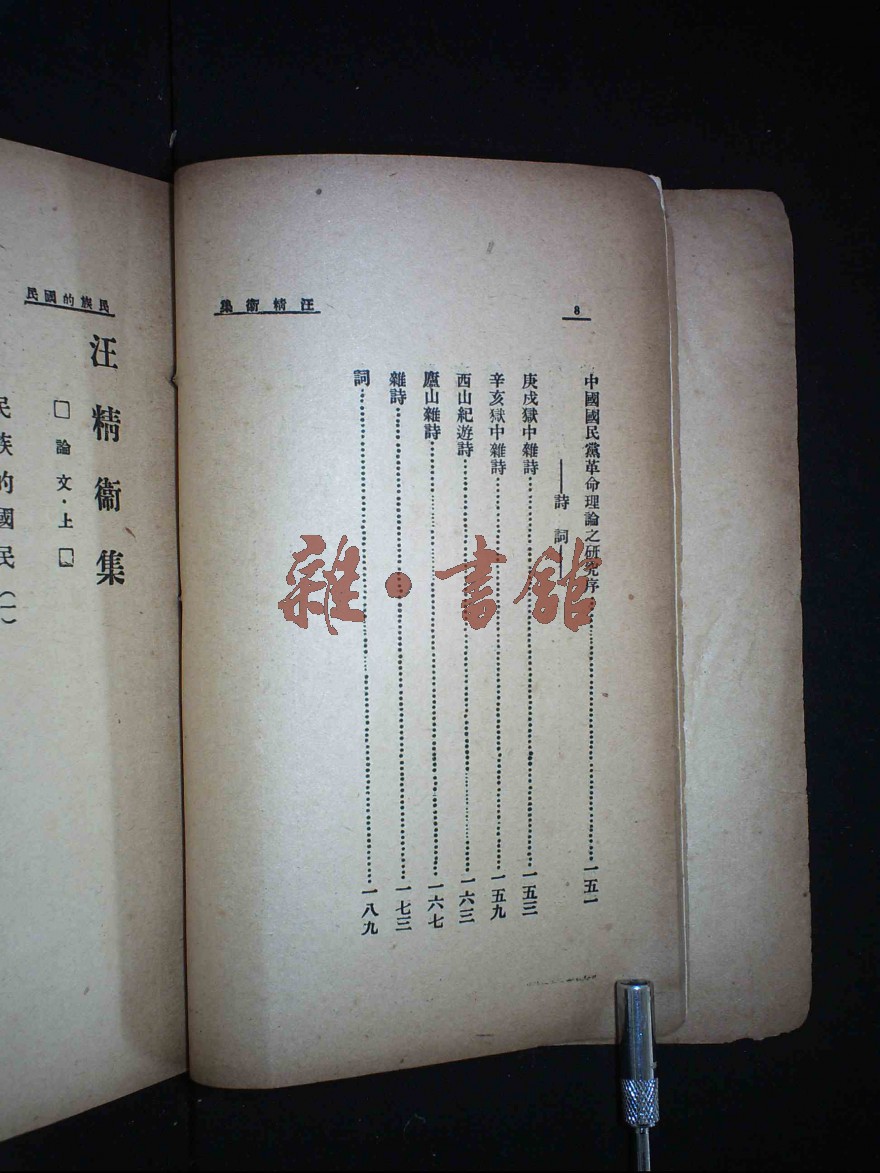 8
汪精衛集
中國國民黨革命理論之研究序……一五一
——詩 詞——
庚戌獄中雜詩……一五三
辛亥獄中雜詩……一五九
西山紀遊詩……一六三
廬山雜詩……一六七
雜詩……一七三
詞……一八九
民族的國民
汪精衛集
□論文·上□
民族的國民(一)
雜·書館